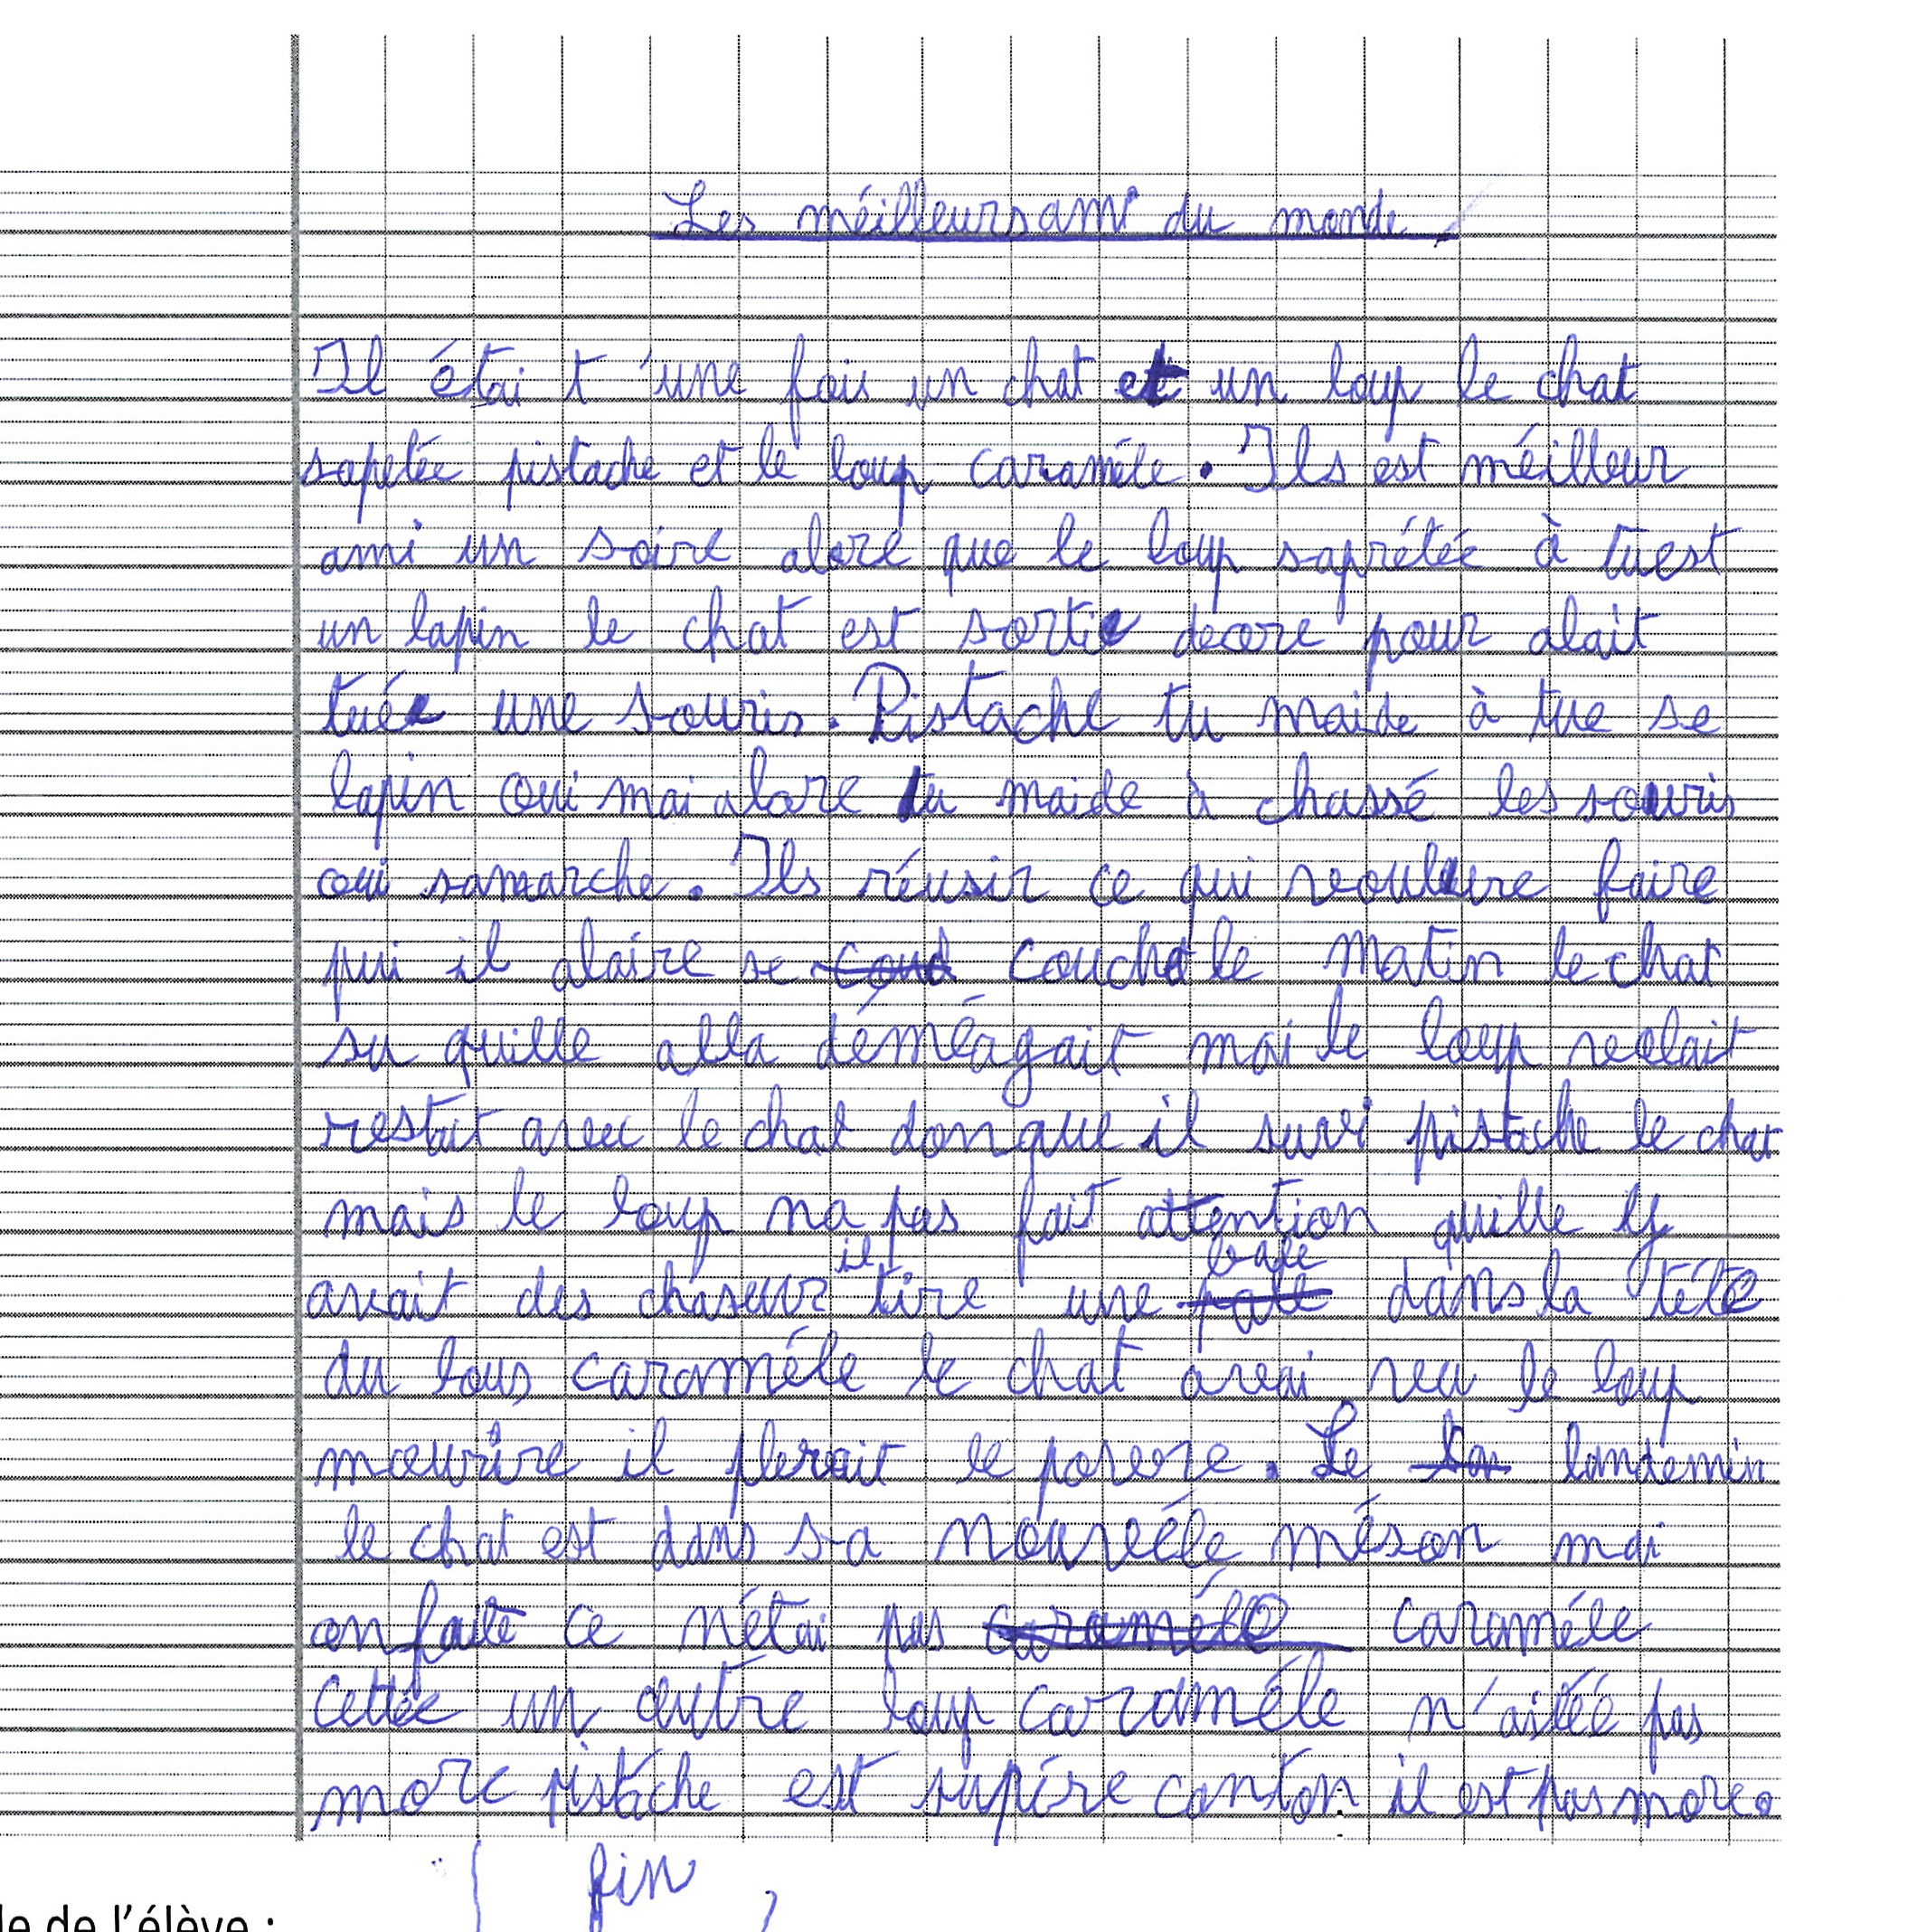 Les méilleurs ami du monde
Il étai t 'une fois un chat et un loup le chat
sapetée pistache et le loup caraméle. Ils est méilleur
ami un soire alore que le loup saprétée à tuest
un lapin le chat est sortie decore pour alait
tuée une souris. Pistache tu maide à tue se
lapin oui mai alore tu maide à chassé les souris
oui samarche. Ils réusir ce qui voulure faire
pui il alaire se couché le matin le chat
su quille alla déméagait mai le loup volait
restait avec le chat donque il suivi pistache le chat
mais le loup na pas fait attention quille y
avait des chaseur il tire une bale dans la téte
du lous caraméle le chat avai veu le loup
mourire il plerait le povere. Le landemin
le chat est dans sa nouvéle méson mai
onfaite ce n'étai pas caraméle
cettée un autre loup caraméle n'aitée pas
morc pistache est supére conton il est pas morc.
fin
le de l'élève :